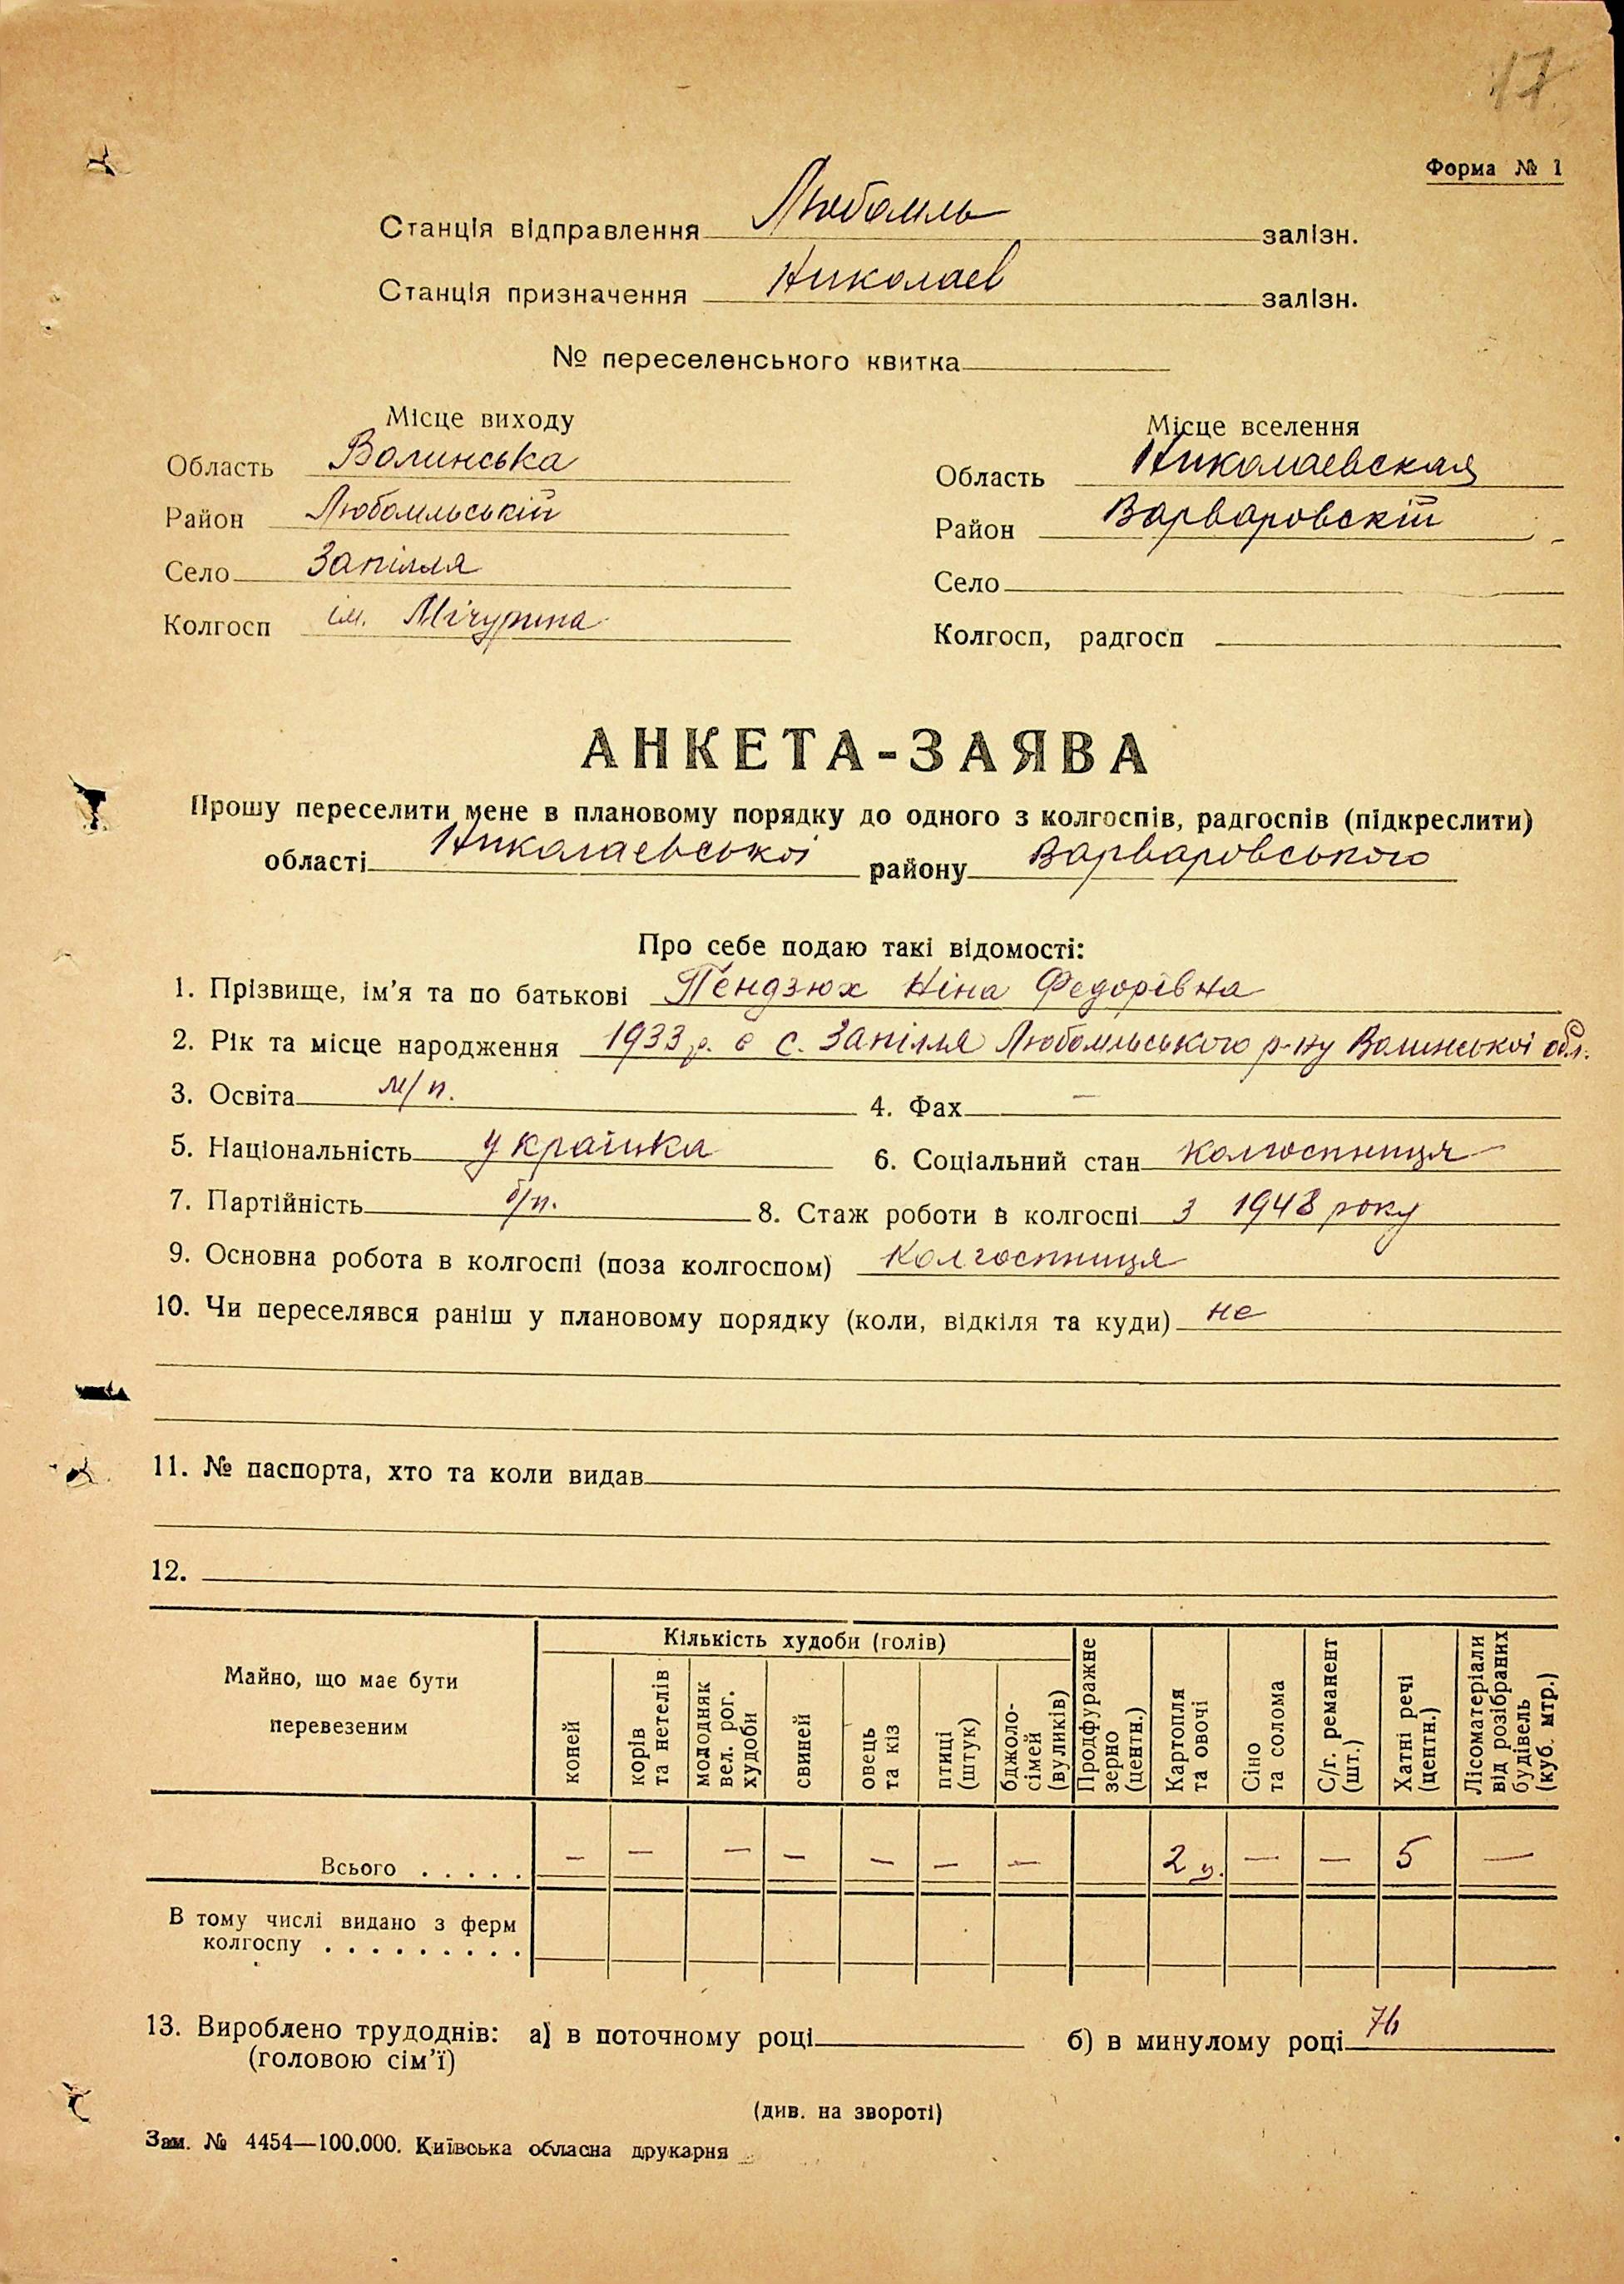 17
Форма № 1
Станція відправлення Любомль залізн.
Станція призначення Николаев залізн.
№ переселенського квитка
Місце виходу
Область Волинська
Район Любомльській
Село Запілля
Колгосп ім. Мічурина
Місце вселення
Область Николаевская
Район Варваровскій
Село
Колгосп, радгосп
АНКЕТА-ЗАЯВА
Прошу переселити мене в плановому порядку до одного з колгоспів, радгоспів (підкреслити)
області Николаевської району Варваровського
Про себе подаю такі відомості:
1. Прізвище, ім'я та по батькові Пендзюх Ніна Федорівна
2. Рік та місце народження 1933 р. в с. Запілля Любомльського р-ну Волинської обл.
3. Освіта м/п. 4. Фах —
5. Національність українка 6. Соціальний стан колгоспниця
7. Партійність б/п. 8. Стаж роботи в колгоспі з 1948 року
9. Основна робота в колгоспі (поза колгоспом) колгоспниця
10. Чи переселявся раніш у плановому порядку (коли, відкіля та куди) не
11. № паспорта, хто та коли видав
12.
Майно, що має бути перевезеним
Кількість худоби (голів)
коней
корів та нетелів
молодняк вел. рог. худоби
свиней
овець та кіз
птиці (штук)
бджоло-сімей (вуликів)
Продфуражне зерно (центн.)
Картопля та овочі
Сіно та солома
С/г. реманент (шт.)
Хатні речі (центн.)
Лісоматеріали від розібраних будівель (куб. мтр.)
Всього . . . . . — — — — — — — 2 ц. — — 5 —
В тому числі видано з ферм
колгоспу . . . . . . . . .
13. Вироблено трудоднів: а) в поточному році б) в минулому році 76
(головою сім'ї)
(див. на звороті)
Зам. № 4454—100.000. Київська обласна друкарня